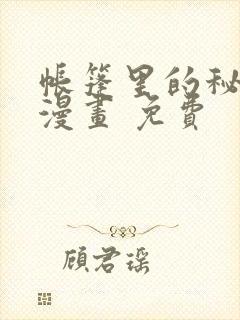 帐篷里的秘
漫畫 免費
顾君瑶